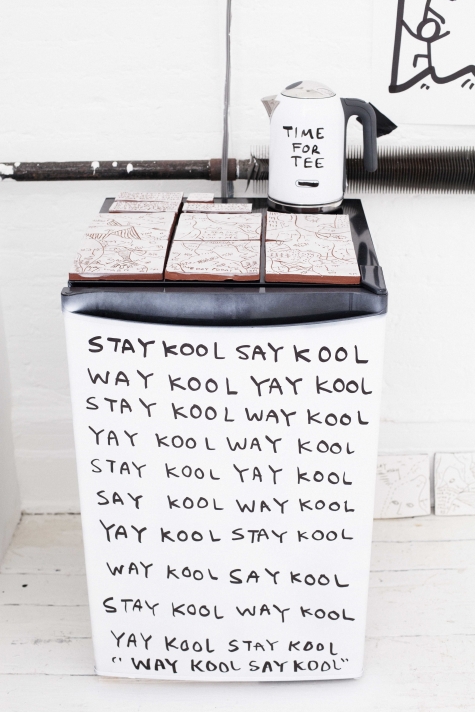 TIME
FOR
TEE
STAY KOOL SAY KOOL
WAY KOOL YAY KOOL
STAY KOOL WAY KOOL
YAY KOOL WAY KOOL
STAY KOOL YAY KOOL
SAY KOOL WAY KOOL
YAY KOOL STAY KOOL
WAY KOOL SAY KOOL
STAY KOOL WAY KOOL
YAY KOOL STAY KOOL
“WAY KOOL SAY KOOL”